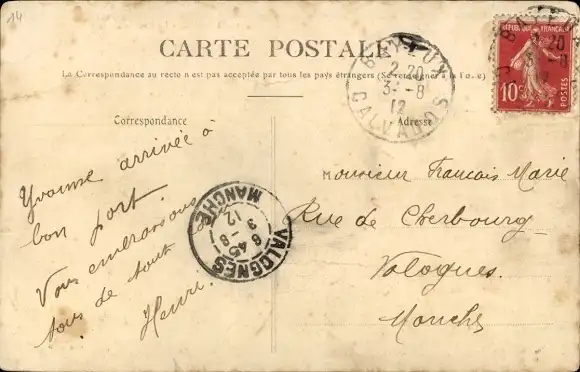 14
CARTE POSTALE
La Correspondance au recto n'est pas acceptée par tous les pays étrangers (Se renseigner à la Poste)
Correspondance
Adresse
Yvonne arrivée à
bon port
Vous embrassons
tous de tout
Henri.
Monsieur Francois Marie
Rue de Cherbourg
Valognes.
Manche
BAYEUX
2 20
3 -8
12
CALVADOS
VALOGNES
6 45
3 -8
12
MANCHE
REPUBLIQUE FRANCAISE
10c
POSTES